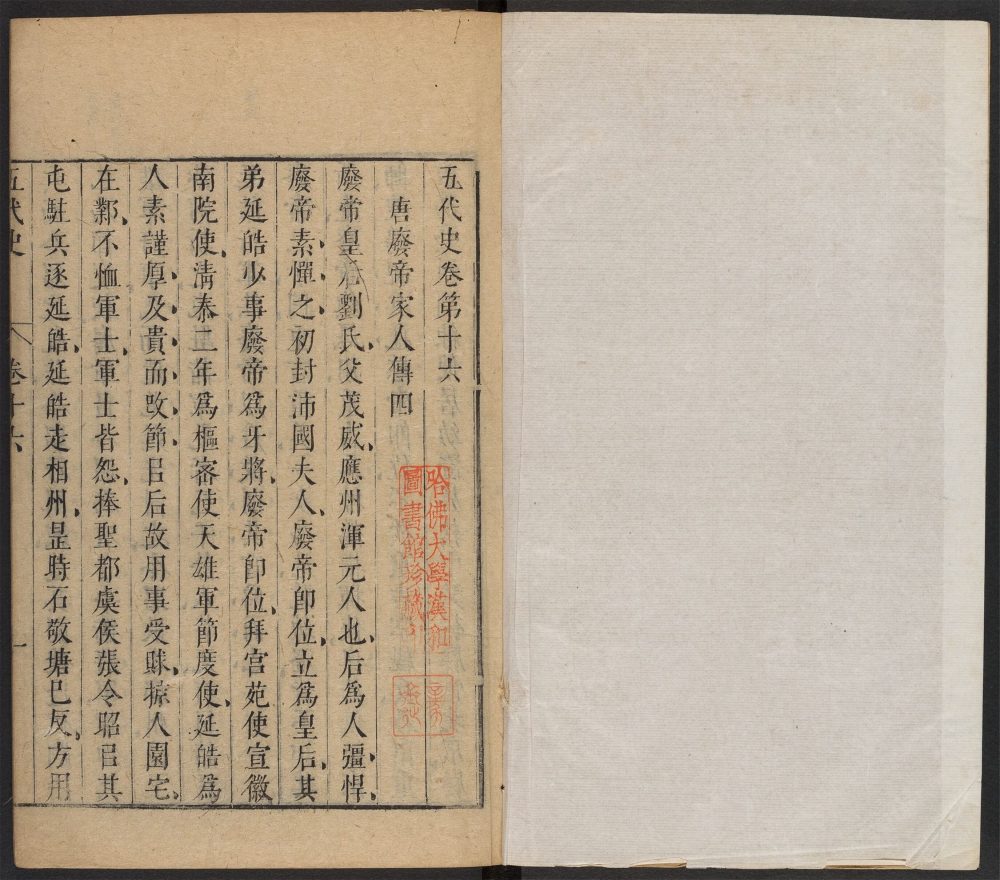 五代史卷第十六
唐廢帝家人傳四
廢帝皇后劉氏父茂威應州渾元人也后爲人彊悍
廢帝素憚之初封沛國夫人廢帝卽位立爲皇后其
弟延皓少事廢帝爲牙將廢帝卽位拜宫苑使宣徽
南院使淸泰二年爲樞密使天雄軍節度使延皓爲
人素謹厚及貴而攺節㠯后故用事受賕掠人園宅
在鄴不恤軍士軍士皆怨捧聖都虞侯張令昭㠯其
屯駐兵逐延皓延皓走相州是時石敬塘已反方用
五代史
卷十六
一
哈佛大學漢和
圖書館珍藏